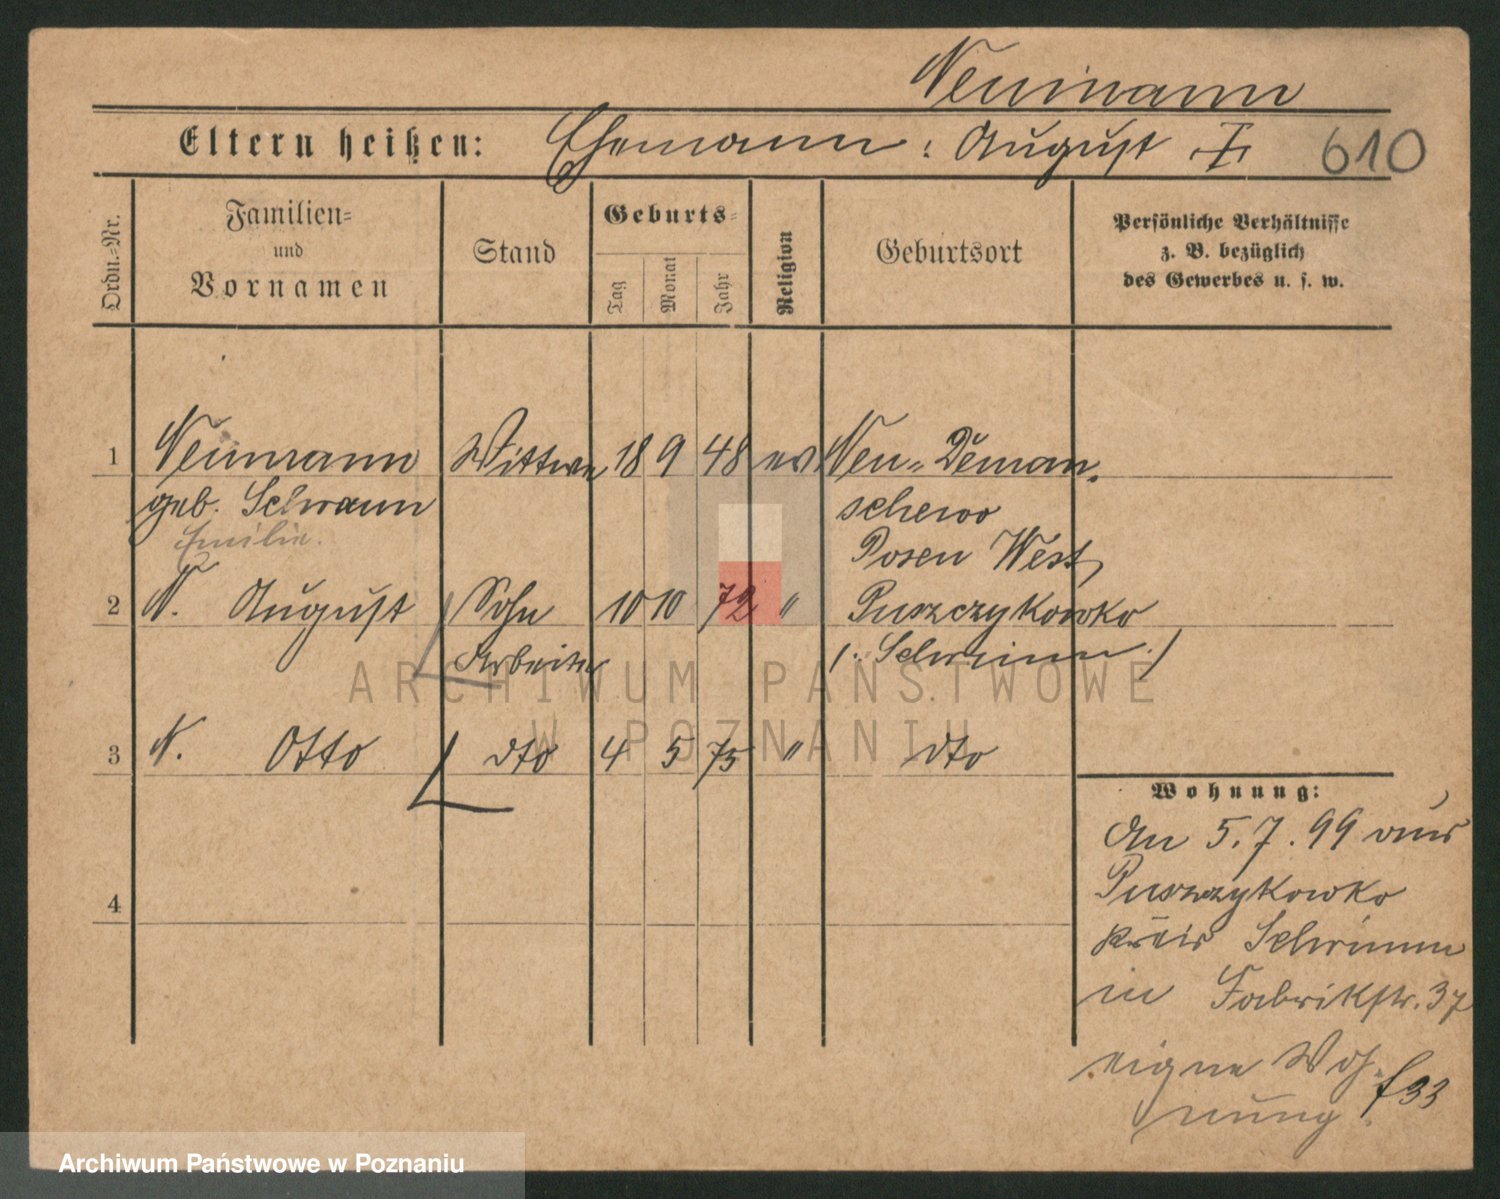 Neumann
Eltern heißen: Ehemann: August ‡ 610
Ordn.-Nr.
Familien=
und
Vornamen
Stand
Geburts=
Tag
Monat
Jahr
Religion
Geburtsort
Persönliche Verhältnisse
z. B. bezüglich
des Gewerbes u. s. w.
1 Neumann Wittwe 18 9 48 ev Neu=Deman=
geb. Schramm schewo
Emilie. Posen West,
2 N. August Sohn 10 10 72 " Puszczykowko
Arbeiter /: Schrimm :/
3 N. Otto dto 4 5 75 " dto
4
Wohnung:
An 5.7.99 aus
Puszczykowko
Kreis Schrimm
in Fabrikstr. 37
eigne Woh=
nung. f 33
ARCHIWUM PAŃSTWOWE
W POZNANIU
Archiwum Państwowe w Poznaniu